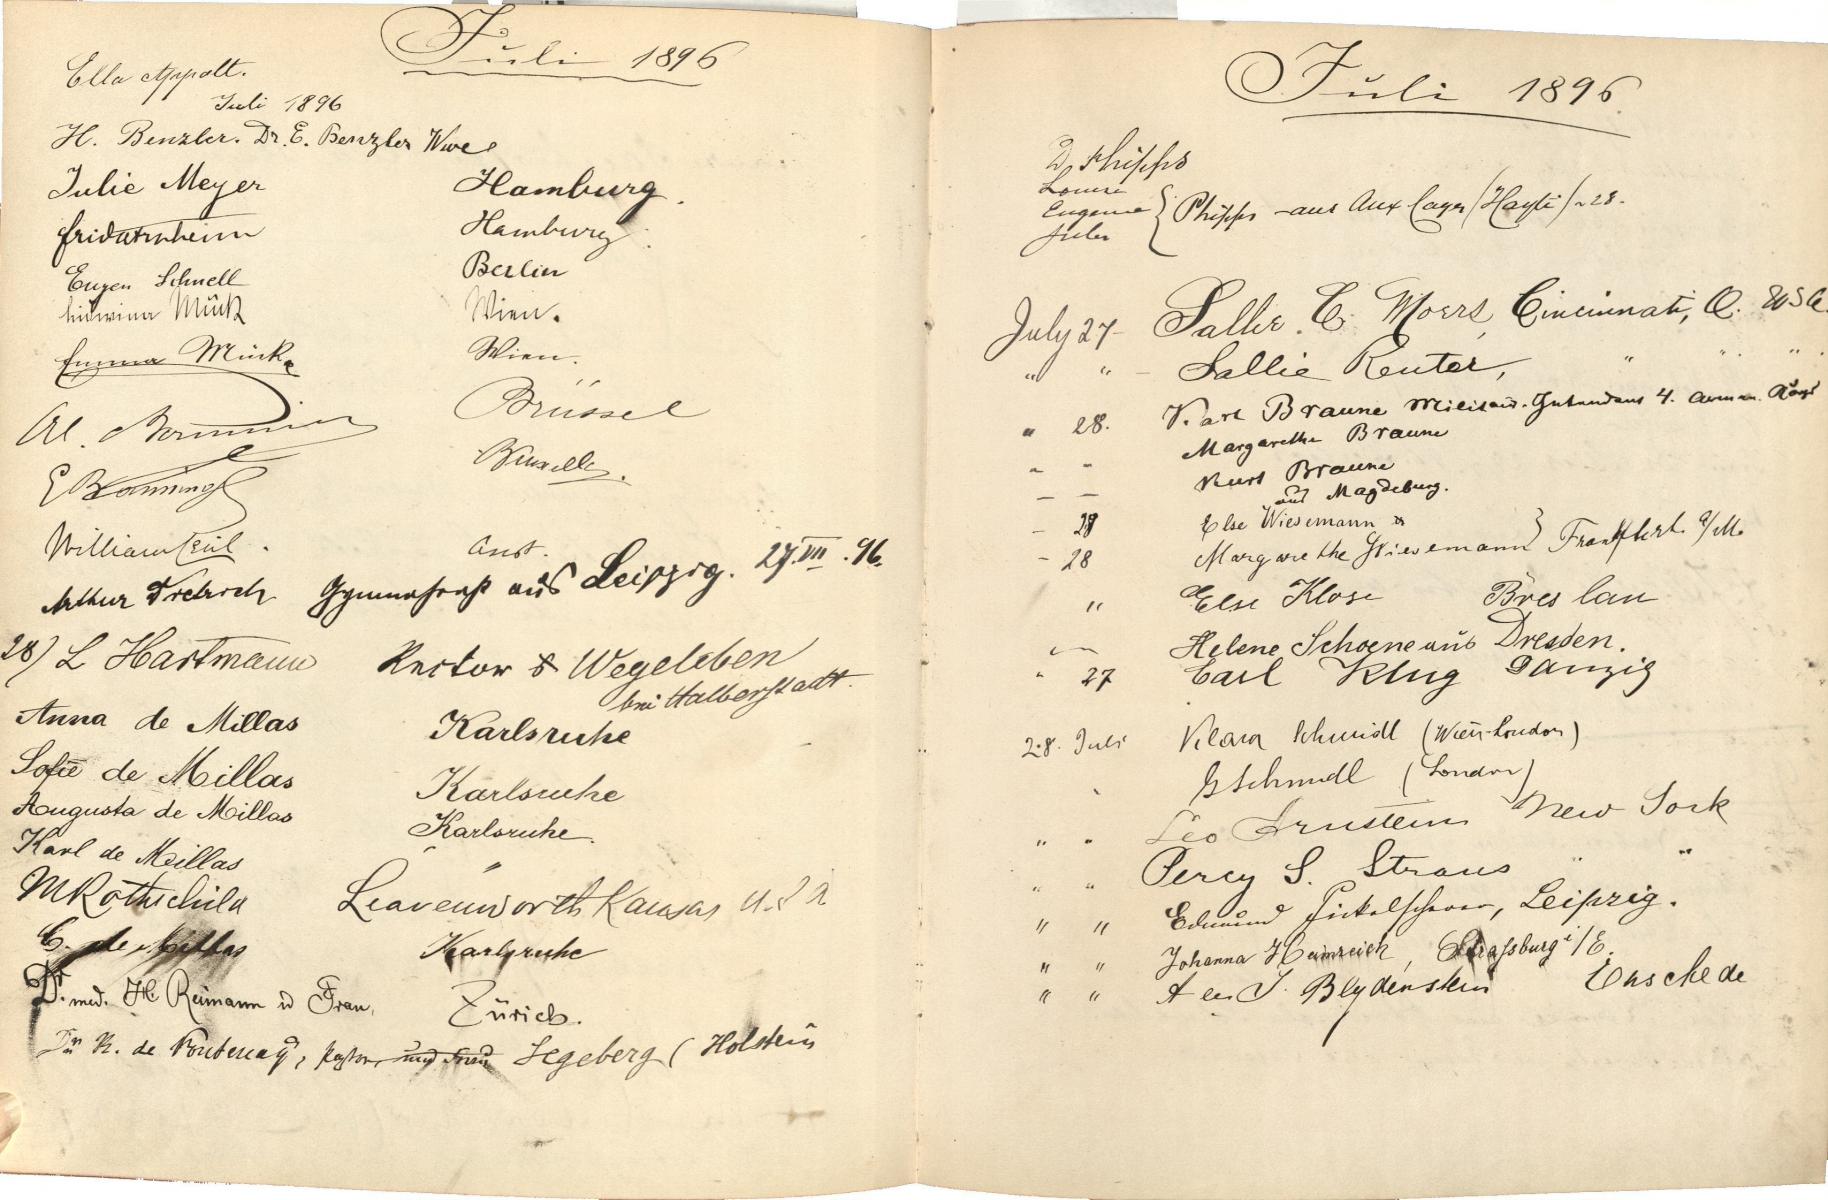 Juli 1896
Ella Appolt.
Juli 1896
H. Benzler. Dr. E. Benzler Wwe
Julie Meyer Hamburg.
Hamburg.
Eugen Schnell Berlin
Mück Wien.
Emma Mück Wien.
Al. Brüssel
E Bruxelles.
William
Arthur Dietrich Gymnasiast aus Leipzig. 27.VII.96.
28) L Hartmann Rector Wegeleben
bei Halberstadt.
Anna de Millas Karlsruhe
Sofie de Millas Karlsruhe
Augusta de Millas Karlsruhe.
Karl de Millas " "
M Rothschild Leavenworth Kansas U.S.A
C. de Millas Karlsruhe
Dr. med. H Reimann u Frau, Zürich.
R. de Fontenay, Pastor, und Frau Segeberg (Holstein
Juli 1896
D. Phipps
Louise
Eugenie } Phipps aus Aux Cayes (Hayti) 28.
Jules
July 27 - Sallie C. Moers, Cincinnati, O. USA.
" " - Sallie Reuter, " " "
" 28. Karl Braune Militär-Intendant 4. Armee
" " Margarethe Braune
— — Kurt Braune
aus Magdeburg.
- 28 Else Wiesemann
- 28 Margarethe Wiesemann } Frankfurt a/M.
" Else Klose Breslau
Helene Schoene aus Dresden.
" 27 Carl Klug Danzig
28. Juli Klara Schmidl (Wien-London)
" G Schmidl (London)
" " Leo Arnstein New York
" " Percy S. Straus " "
" " Edmund Pickelscherer, Leipzig.
" " Johanna Heimreich, Strassburg i/E.
" " Blydenstein Enschede